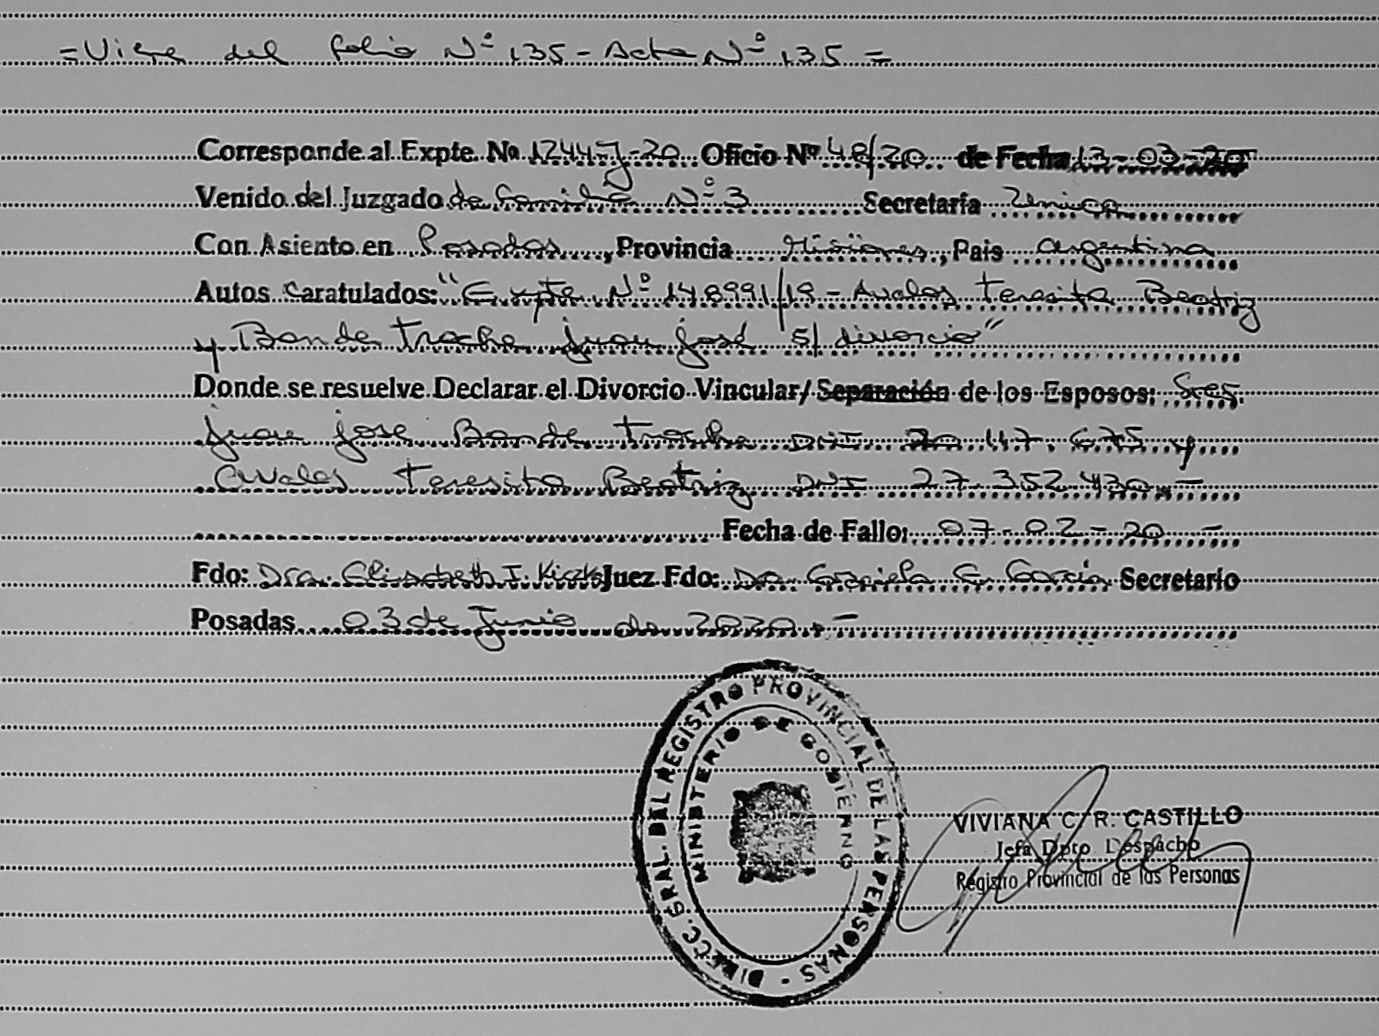 = Viene del folio Nº 135 - Acta Nº 135 =
Corresponde al Expte. Nº 12447-20 Oficio Nº 48/20 de Fecha 13-03-20
Venido del Juzgado de Familia Nº 3 Secretaría Única
Con Asiento en Posadas, Provincia Misiones, País Argentina
Autos Caratulados: "Expte Nº 148991/19 - Avalos Teresita Beatriz
y Bonde Troche Juan José s/ divorcio"
Donde se resuelve Declarar el Divorcio Vincular/ Separación de los Esposos: Sres.
Juan José Bonde Troche DNI 117.675 y
Avalos Teresita Beatriz DNI 27.352.430.-
Fecha de Fallo: 07-02-20 -
Fdo: Dra. Elisabeth I. Juez Fdo: Dra. Graciela G. García Secretario
Posadas 03 de Junio de 2020.-
DIRECC. GRAL. DEL REGISTRO PROVINCIAL DE LAS PERSONAS -
MINISTERIO DE GOBIERNO
VIVIANA C. R. CASTILLO
Jefa Dpto Despacho
Registro Provincial de las Personas